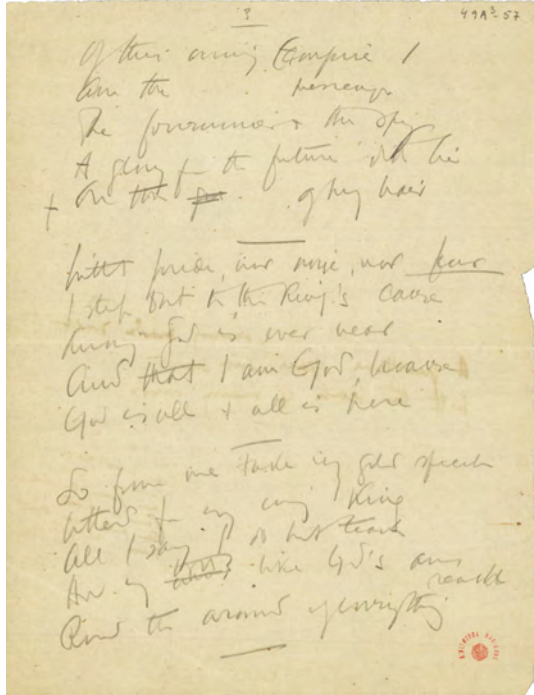 ?
49A³-57
Of this coming Empire I
Am the messenger
The forerunner & the spy
A glory for the future doth lie
+ On of her hair
Without pride, nor noise, nor fear
I step out to the King's cause
God is ever near
And that I am God, because
God is all & all is here
So from me take my gold speech
for my coming King
All I say I do but teach
And my like God's arms reach
Round the around of everything